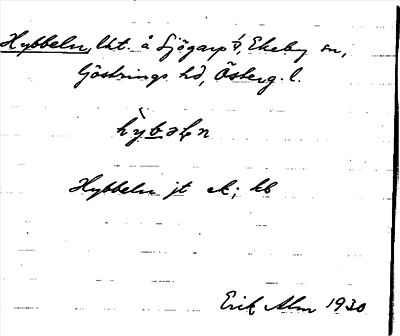 Hybbeln, lht. å Sjögarp 1/1, Ekeby sn,
Göstrings hd, Österg. l.
hỳbəl̥n
Hybbeln jt ek; kb
Erik Alm 1930